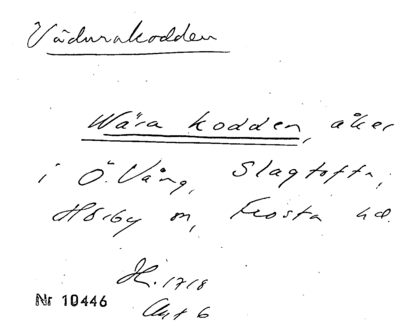 Vädurakodden
Wära kodden, åker
i Ö. Vång, Slagtofta,
Hörby sn, Frosta hd.
H. 1718
Akt 6
Nr 10446